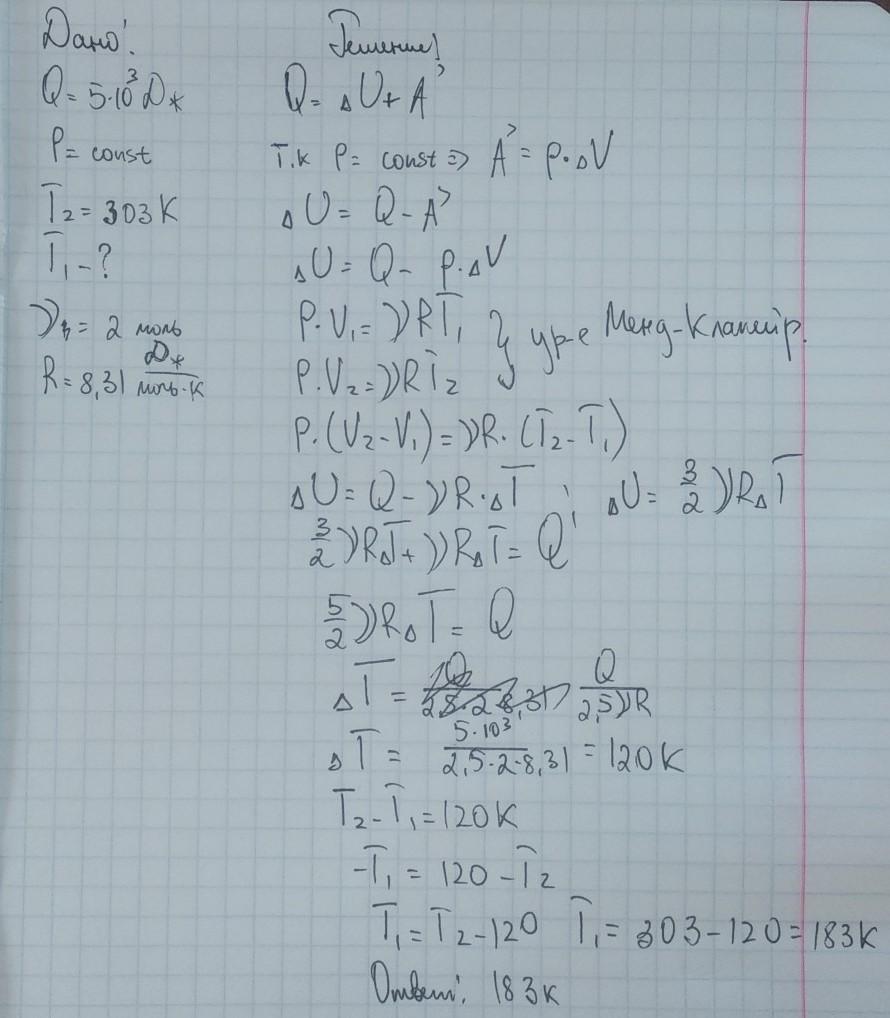 Дано:
Q = 5·10³ Дж
P = const
T₂ = 303 К
T₁ - ?
νв = 2 моль
R = 8,31 Дж/моль·К
Решение:
Q = ΔU + A'
Т.к P = const => A' = P·ΔV
ΔU = Q - A'
ΔU = Q - P·ΔV
P·V₁ = νRT₁ } ур-е Менд-Клапейр.
P·V₂ = νRT₂
P·(V₂-V₁) = νR·(T₂-T₁)
ΔU = Q - νR·ΔT ; ΔU = 3/2 νRΔT
3/2 νRΔT + νRΔT = Q
5/2 νRΔT = Q
ΔT = Q/2,5νR
ΔT = 5·10³/2,5·2·8,31 = 120К
T₂-T₁ = 120К
-T₁ = 120 - T₂
T₁ = T₂-120 T₁ = 303-120 = 183К
Ответ: 183К